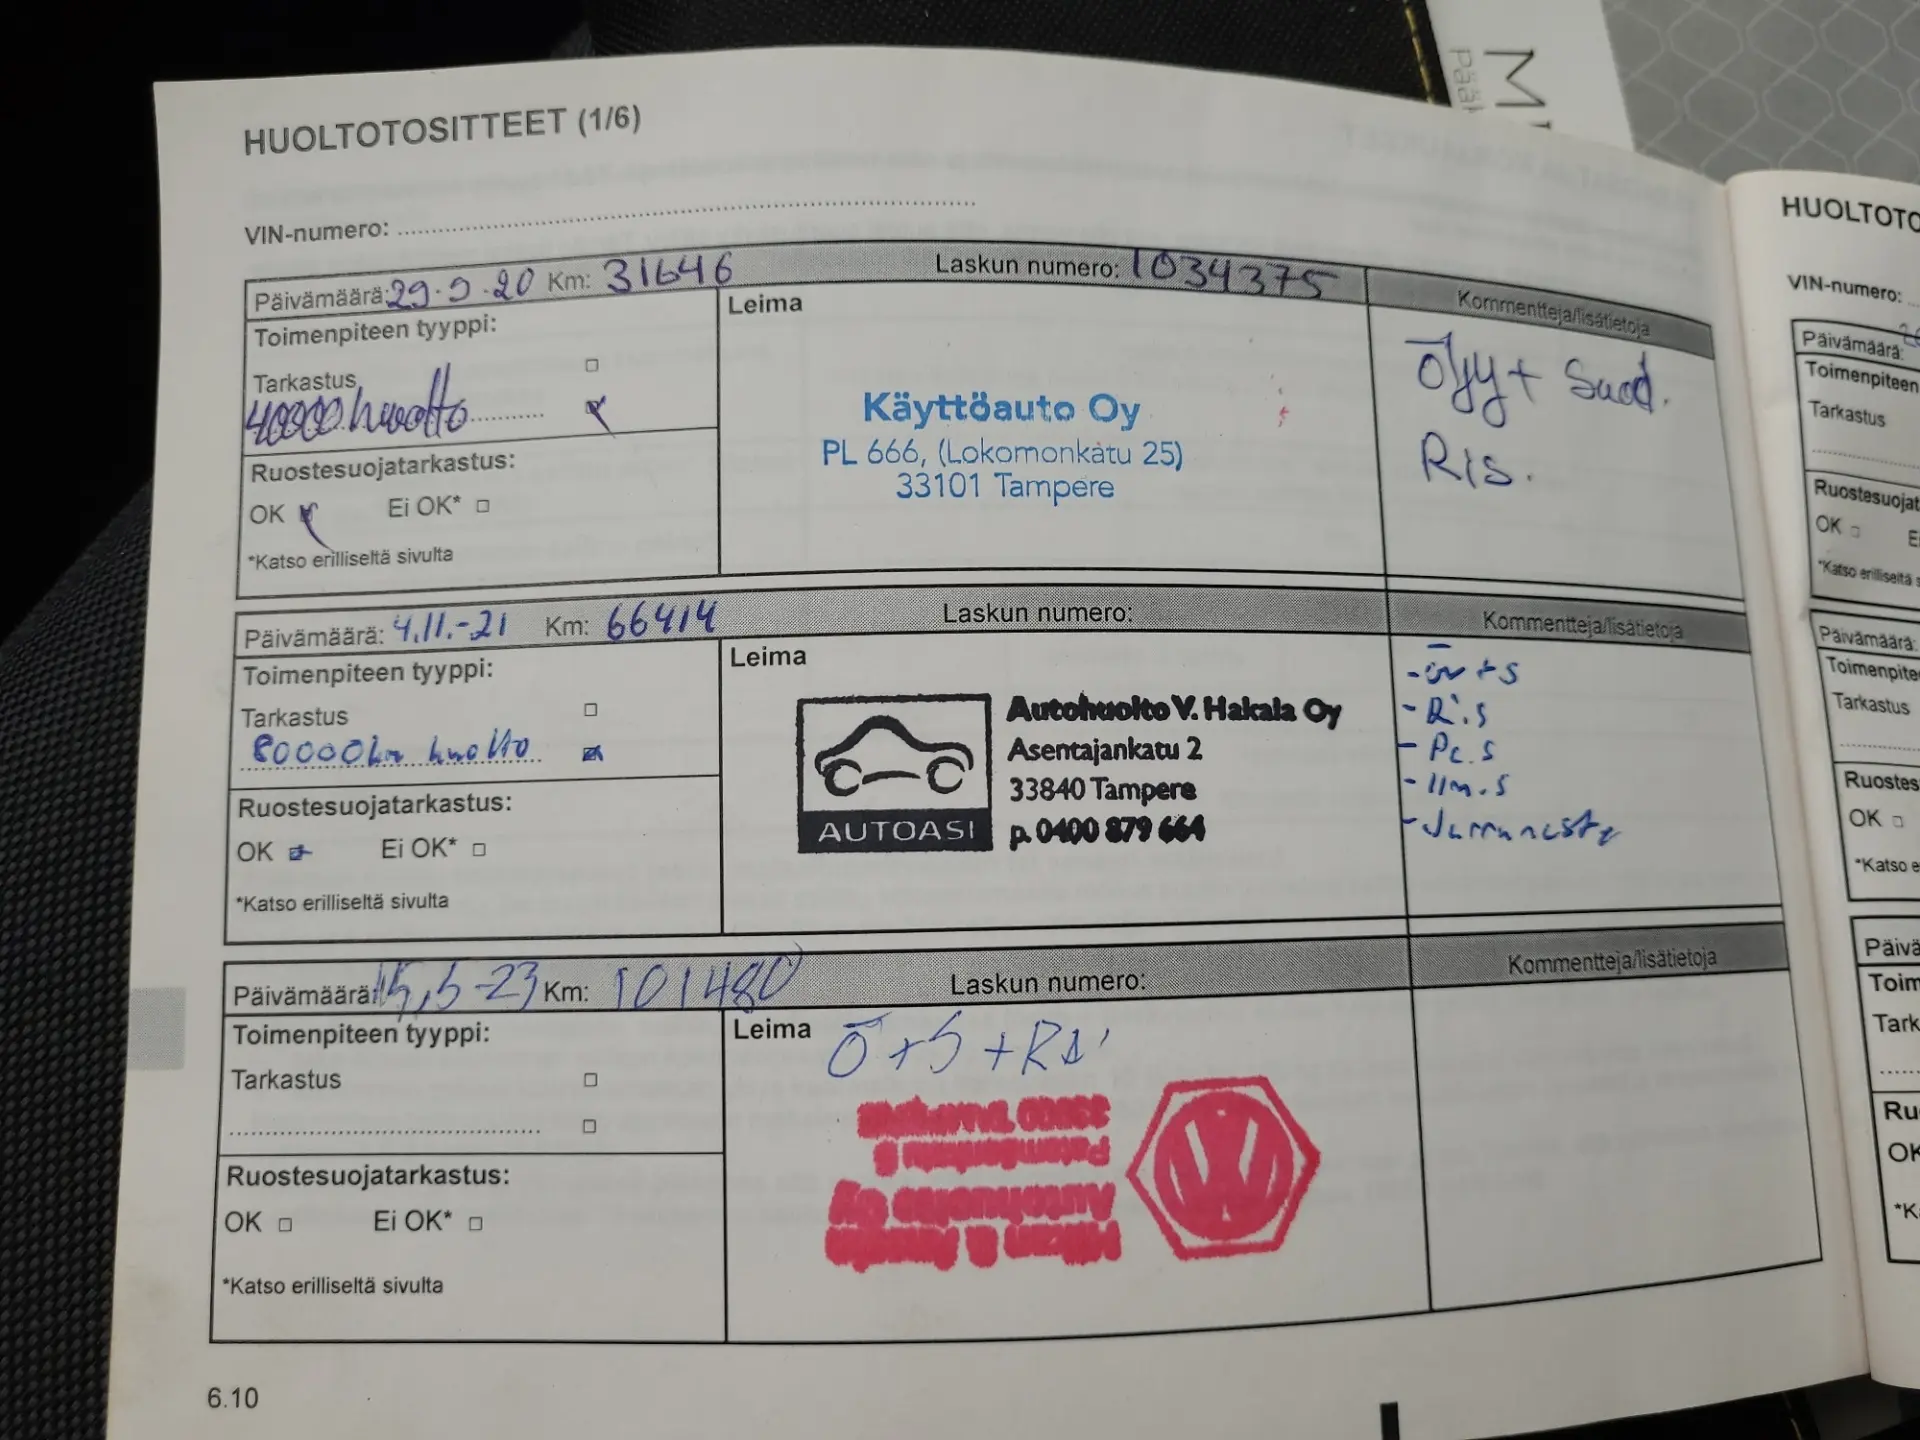 HUOLTOTOSITTEET (1/6)
VIN-numero:
Päivämäärä: 29.9.20 Km: 31646 Laskun numero: 1034375
Kommentteja/lisätietoja
Toimenpiteen tyyppi:
Tarkastus
40000 huolto
Ruostesuojatarkastus:
OK Ei OK*
*Katso erilliseltä sivulta
Leima
Käyttöauto Oy
PL 666, (Lokomonkatu 25)
33101 Tampere
Öljy + Suod.
Ris.
Päivämäärä: 4.11.-21 Km: 66414 Laskun numero:
Kommentteja/lisätietoja
Toimenpiteen tyyppi:
Tarkastus
80000km huolto
Ruostesuojatarkastus:
OK Ei OK*
*Katso erilliseltä sivulta
Leima
AUTOASI
Autohuolto V. Hakala Oy
Asentajankatu 2
33840 Tampere
p. 0400 879 664
- R.s
- Pc.s
- Ilm.s
- Jarruneste
Päivämäärä: 15,5-23 Km: 101480 Laskun numero:
Kommentteja/lisätietoja
Toimenpiteen tyyppi:
Tarkastus
Ruostesuojatarkastus:
OK Ei OK*
*Katso erilliseltä sivulta
Leima
Ö+S+RS
Autohuolto Oy
33800 TAMPERE
6.10
HUOLTOTO
VIN-numero:
Päivämäärä:
Toimenpiteen
Tarkastus
Ruostesuojat
OK
*Katso erilliseltä s
Päivämäärä:
Toimenpite
Tarkastus
Ruostes
OK
*Katso e
Päivä
Toim
Tark
Ru
OK
*K